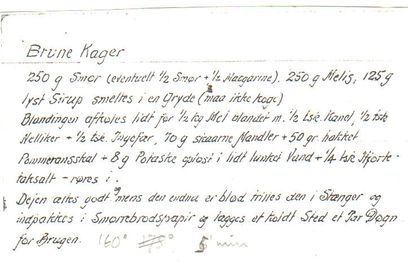 Brune Kager
250 g Smør (eventuelt 1/2 Smør + 1/2 Margarine), 250 g Melis, 125 g
lyst Sirup smeltes i en Gryde (maa ikke koge)
Blandingen afkøles lidt før 1/2 kg Mel blandet m. 1/2 tsk. Kanel, 1/2 tsk
Nelliker + 1/2 tsk. Ingefær, 70 g skaarne Mandler + 50 gr. hakket
Pommeransskal + 8 g Potaske opløst i lidt lunket Vand + 1/4 tsk Hjorte-
taksalt - røres i.
Dejen æltes godt og mens den endnu er blød trilles den i Stænger og
indpakkes i Smørrebrødspapir og lægges et koldt Sted et Par Døgn
før Brugen. 160° 175° 5 min